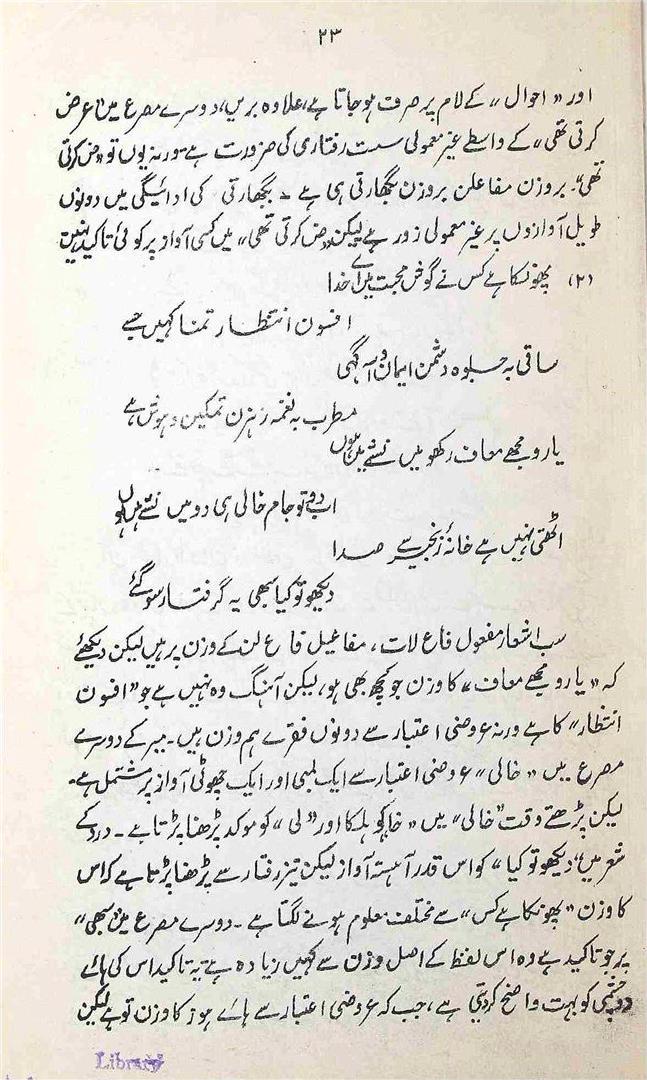 ۲۳
اور "احوال" کے لام پر صرف ہو جاتا ہے، علاوہ بریں، دوسرے مصرع میں "عرض
کرتی تھی" کے واسطے غیر معمولی سست رفتاری کی ضرورت ہے ورنہ یوں تو "ض کرتی
تھی" بر وزن مفاعلن بر وزن بگھارتی ہی ہے۔ بگھارتی کی ادائیگی میں دونوں
طویل آوازوں پر غیر معمولی زور ہے لیکن "ض کرتی تھی" میں کسی آواز پر کوئی تاکید نہیں
(۲) پھونکا ہے کس نے گوش محبت میں اے خدا
افسون انتظار تمنا کہیں جسے
ساقی بہ جلوہ دشمن ایمان و آگہی
مطرب بہ نغمہ رہزن تمکین و ہوش ہے
یارو مجھے معاف رکھو میں نشے میں ہوں
اب دو تو جام خالی ہی دو میں نشے میں ہوں
اٹھتی نہیں ہے خانۂ زنجیر سے صدا
دیکھو تو کیا سبھی یہ گرفتار سو گئے
سب اشعار مفعول فاع لات، مفاعیل فاع لن کے وزن پر ہیں لیکن دیکھئے
کہ "یارو مجھے معاف" کا وزن جو کچھ بھی ہو، لیکن آہنگ وہ نہیں ہے جو "افسون
انتظار" کا ہے ورنہ عروضی اعتبار سے دونوں فقرے ہم وزن ہیں۔ میر کے دوسرے
مصرع میں "خالی" عروضی اعتبار سے ایک لمبی اور ایک چھوٹی آواز پر مشتمل ہے۔
لیکن پڑھتے وقت "خالی" میں "خا" کو ہلکا اور "لی" کو موکد پڑھنا پڑتا ہے۔ درد کے
شعر میں "دیکھو تو کیا" کو اس قدر آہستہ آواز لیکن تیز رفتار سے پڑھنا پڑتا ہے کہ اس
کا وزن "پھونکا ہے کس" سے مختلف معلوم ہونے لگتا ہے۔ دوسرے مصرع میں "سبھی"
پر جو تاکید ہے وہ اس لفظ کے اصل وزن سے کہیں زیادہ ہے یہ تاکید اس کی ہائے
دو چشمی کو بہت واضح کر دیتی ہے، جب کہ عروضی اعتبار سے ہائے ہوز کا وزن تو ہے لیکن
Library